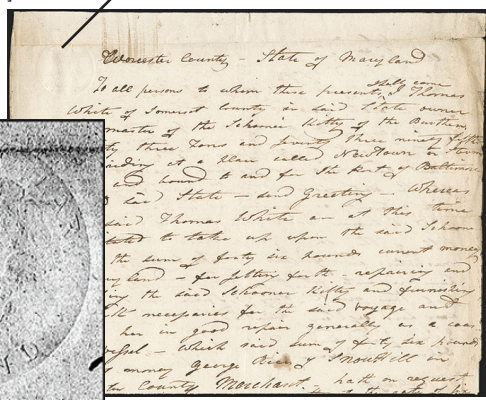 Worcester County - State of Maryland
To all persons to whom these presents shall come I Thomas
White of Somerset County in said State owner
master of the Schooner Kitty of the Burthen
three Tons and seventy three ninety fifths
riding at a place called Newtown in
and bound to and for the Port of Baltimore
said State - send Greeting - Whereas
said Thomas White am at this time
to take up upon the said Schooner
the sum of forty six pounds current money
land - for fitting forth - repairing and
the said Schooner Kitty and furnishing
necessaries for the said voyage and
her in good repair generally as a
vessel - which said sum of forty six pounds
money George of Snowhill in
County Merchant - hath on request